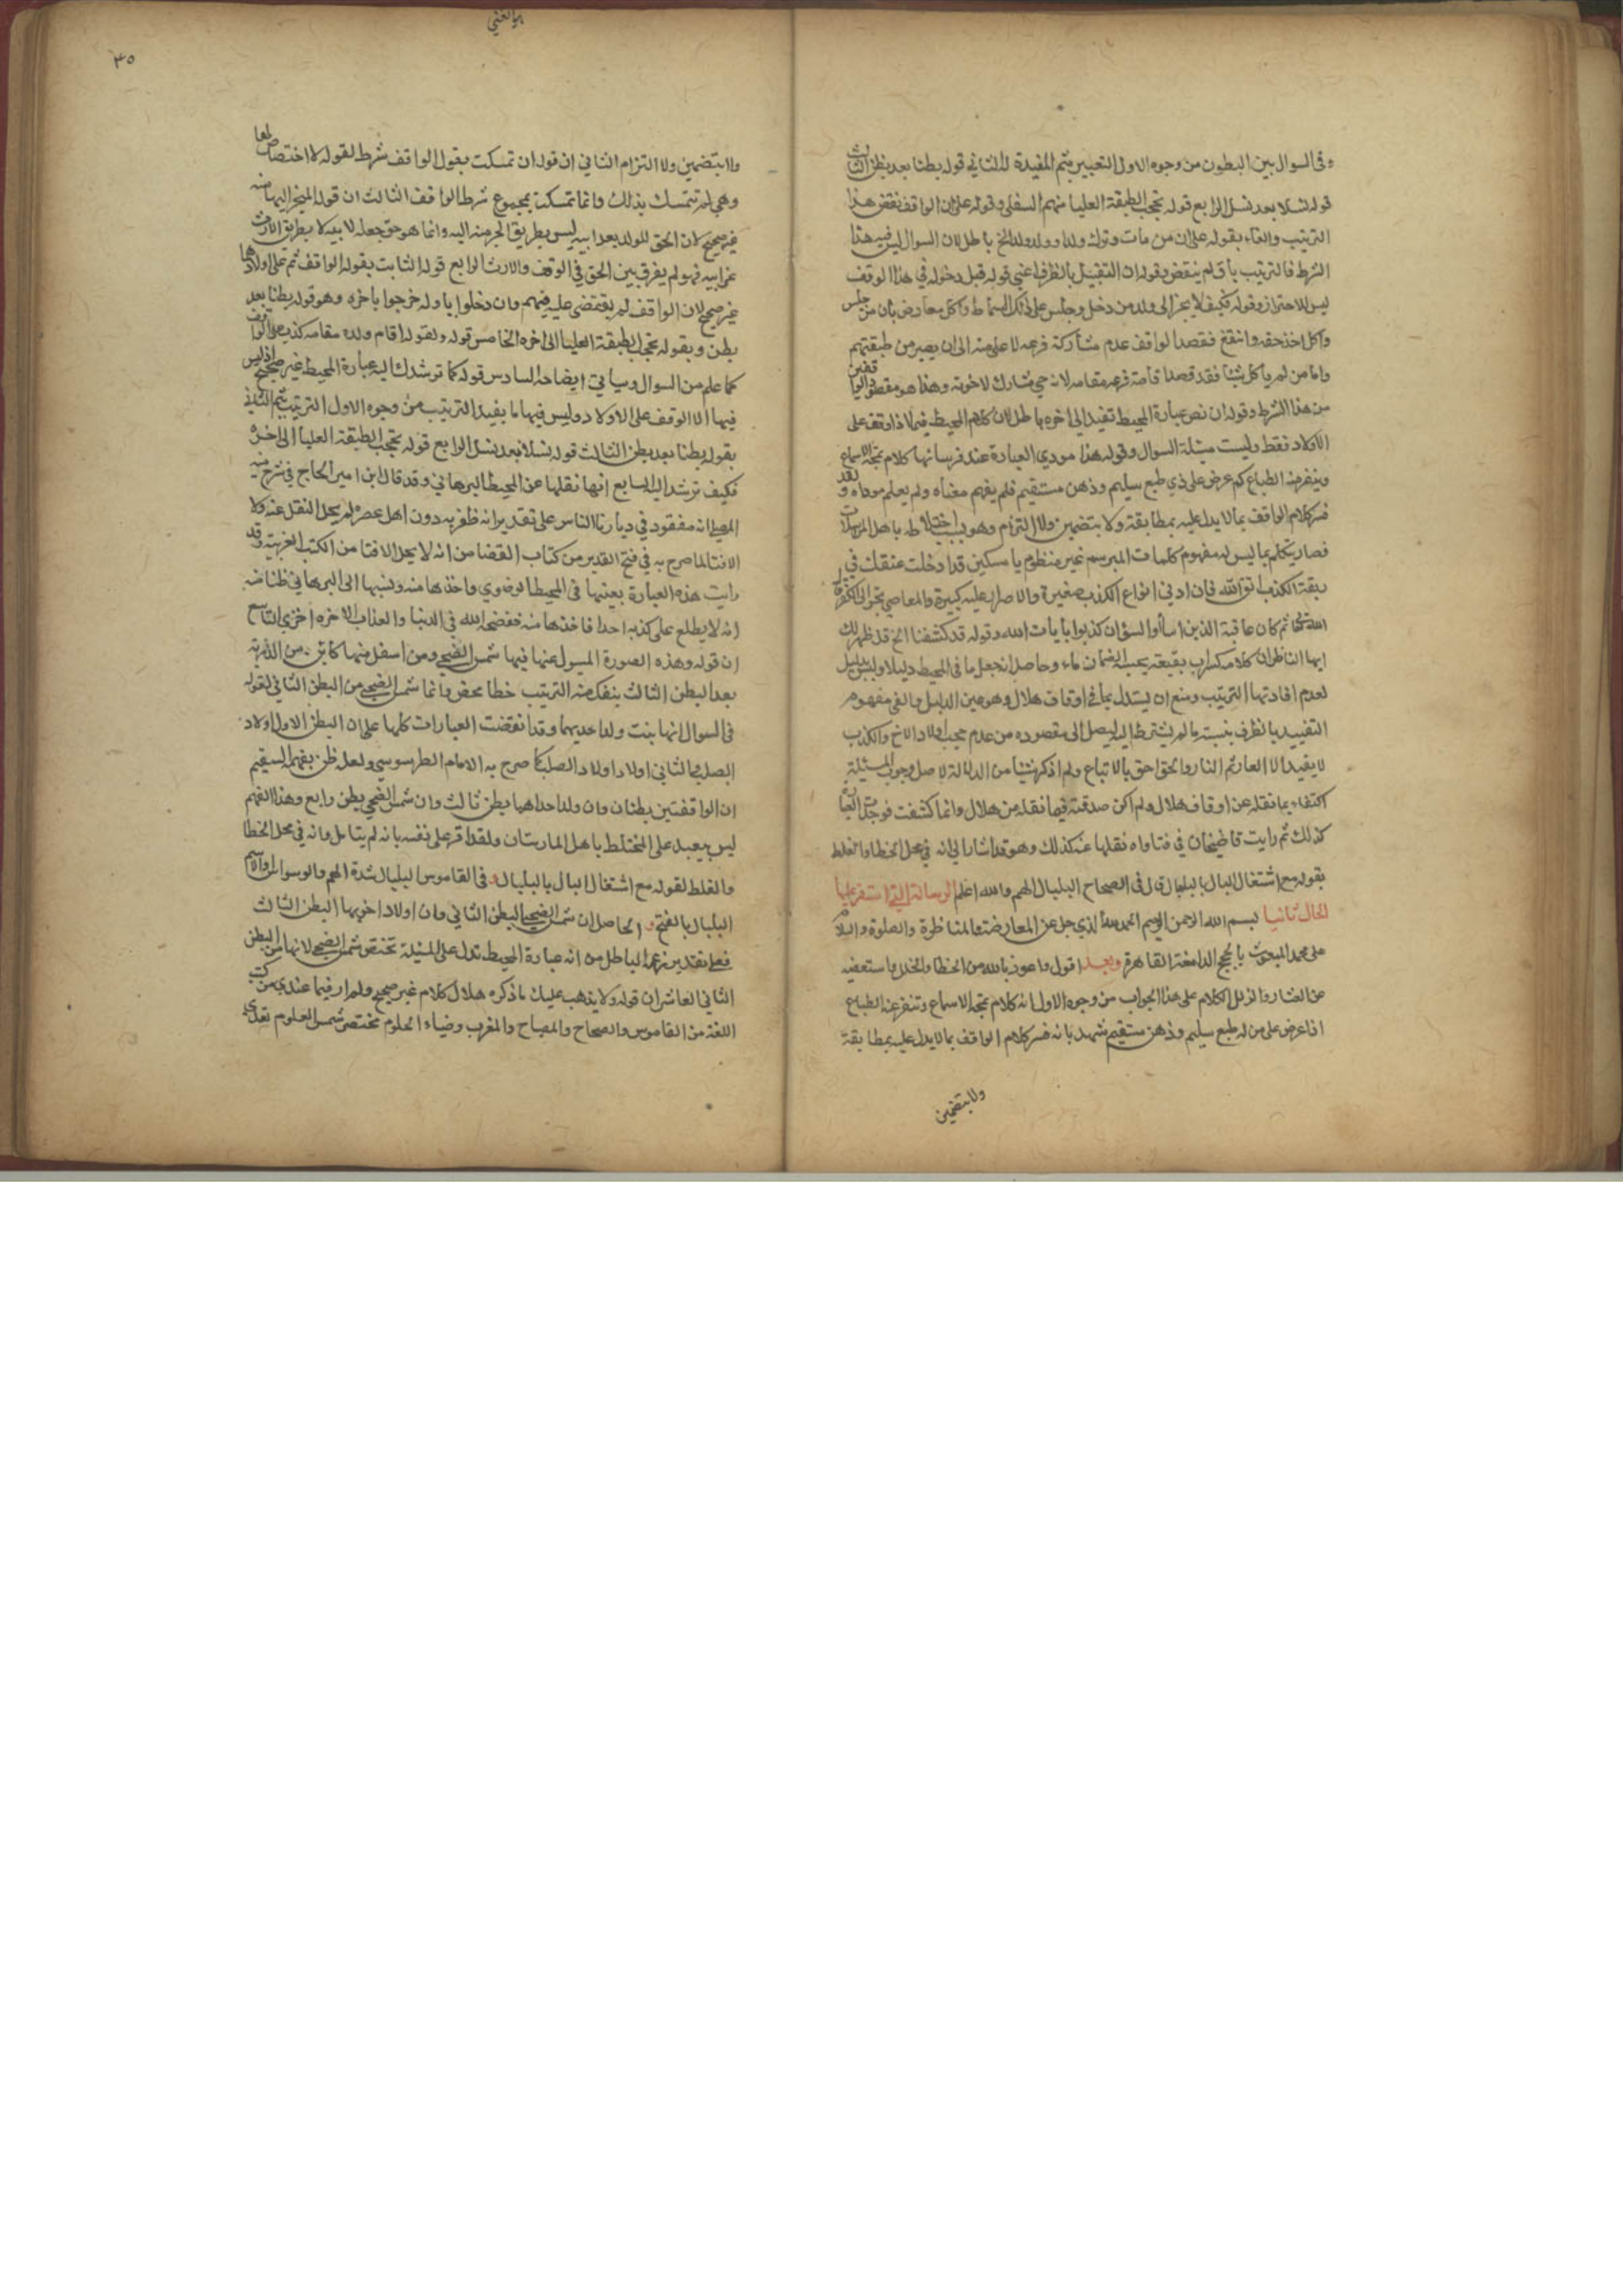 وفى السوال بين البطون من وجوه الاول التعبير بثم المفيدة له الثاني قوله بطنا بعد بطن الثالث
قوله نسلا بعد نسل الرابع قوله تحجب الطبقة العليا منهم السفلى وقوله على ان الواقف نقض هذا
الترتيب والغاه بقوله على ان من مات وترك ولدا وولد ولد الخ باطل لان السوال ليس فيه هذا
الشرط فالترتيب باق لم ينقض وقوله ان التقييد بالظرف اعني قوله قبل دخوله في هذا الوقف
ليس للاحتراز وقوله فكيف لا ينجر الى ولد من دخل وجلس على ذلك السماط واكل معارض بان من جلس
واكل اخذ حقه وانتفع فقصد الواقف عدم مشاركة فرعه لاعلى منه الى ان يصير من طبقتهم
واما من لم ياكل شيئا فقد قصد اقامة فرعه مقامه لانه حي مشارك لاخوته وهذا هو مقصود الواقفين
من هذا الشرط وقوله ان نص عبارة المحيط تفيد الى اخره باطل لان كلام المحيط فيما اذا وقف على
الاولاد فقط وليست مسئلة السوال وقوله هذا مودي العبارة عند فرسانها كلام تمجه الاسماع
وينفر منه الطباع كم عرض على ذي طبع سليم وذهن مستقيم فلم يفهم معناه ولم يعلم موداه ولقد
فسر كلام الواقف بما لا يدل عليه بمطابقة ولا بتضمين ولا التزام وهو بسبب اختلاطه باهل المرستان
فصار يتكلم بما ليس له مفهوم ككلمات المبرسم غير منظوم يا مسكين قد ادخلت عنقك في
ربقة الكذب اتق الله فان ادنى انواع الكذب صغيرة والاصرار عليه كبيرة والمعاصي تجر الى الكفر قال
الله تعالى ثم كان عاقبة الذين اساؤا السؤاى ان كذبوا بايات الله وقوله قد كشفنا الخ قد ظهر لك
ايها الناظر ان كلامه كسراب بقيعة يحسبه الظمان ماء وحاصله انه جعل ما فى المحيط دليلا وليس بدليل
لعدم افادتها الترتيب ومنع ان يستدل بما في اوقاف هلال وهو عين الدليل والغى مفهوم
التقييد بالظرف بنسبته ما لم يشترط اليه ليصل الى مقصوده من عدم حجب اولاد الاخ والكذب
لا يفيد الا العار ثم النار والحق احق بالاتباع ولم اذكر شيئا من الدلالة لاصل وجوب المسئلة
اكتفاء بما نقله عن اوقاف هلال ولم اكن صدقته فيما نقله من هلال وانما كشفت فوجدت العبارة
كذلك ثم رايت قاضيخان في فتاواه نقلها عنه كذلك وهو قد اشار الى انه في محل الخطا والغلط
بقوله مع اشتغال البال بالبلبال قال فى الصحاح البلبال الهم والله اعلم الرسالة التي استقر عليها
الحال ثانيا بسم الله الرحمن الرحيم الحمد لله الذي جل عن المعارضة والمناظرة والصلوة والسلام
على محمد المبعوث بالحجج الدامغة القاهرة وبعد اقول واعوذ بالله من الخطا والخلل واستعصمه
عن العثار والزلل الكلام على هذا الجواب من وجوه الاول انه كلام تمجه الاسماع وتنفر عنه الطباع
اذا عرض على من له طبع سليم وذهن مستقيم شهد بانه فسر كلام الواقف بما لا يدل عليه بمطابقة
ولا بتضمين
٣٥
ولا بتضمين ولا التزام الثاني ان قوله ان تمسكت بقول الواقف شرط لقوله لا اختصاص لها
وهي لم تتمسك بذلك وانما تمسكت بمجموع شرط الواقف الثالث ان قوله المنجر اليها منه
غير صحيح لان الحق للولد بعد ابيه ليس بطريق الجر منه اليه وانما هو حق جعله لا بيه لا بطريق الارث
عن ابيه فهو لم يفرق بين الحق في الوقف والارث الرابع قوله الثابت بقوله الواقف ثم على اولادها
غير صحيح لان الواقف لم يقتضى عليه فيهم وان دخلوا باوله خرجوا باخره وهو قوله بطنا بعد
بطن وبقوله تحجب الطبقة العليا الى اخره الخامس قوله ولقوله اقام ولده مقامه كذب على الواقف
كما علم من السوال وسياتي ايضاحه السادس قوله كما ترشدك اليه عبارة المحيط غير صحيح اذ ليس
فيها الا الوقف على الاولاد وليس فيها ما يفيد الترتيب من وجوه الاول الترتيب بثم الثاني
بقوله بطنا بعد بطن الثالث قوله نسلا بعد نسل الرابع قوله تحجب الطبقة العليا الى اخره
فكيف ترشد اليه السابع انها نقلها عن المحيط البرهاني وقد قال ابن امير الحاج في شرح منية
المصلي انه مفقود في ديارنا الناس على تقدير انه ظفر به دون اهل عصره لم يحل النقل عنه ولا
الافتا لما صرح به في فتح القدير من كتاب القضا من انه لا يحل الافتا من الكتب الغريبة وقد
رايت هذه العبارة بعينها فى المحيط الرضوي واخذها منه ونسبها الى البرهاني ظنا منه
انه لا يطلع على كذبه احد فاخذها منه ففضحه الله في الدنيا والعذاب الاخره اخزى التاسع
ان قوله وهذه الصورة المسول عنها فيها شمس الضحى ومن اسفل منها كائن من الذرية
بعد البطن الثالث ينفك منه الترتيب خطا محض وانما شمس الضحى من البطن الثاني لقوله
فى السوال انها بنت ولد احديهما وقد انقضت العبارات كلها على ان البطن الاول اولاد
الصلب والثاني اولاد اولاد الصلب كما صرح به الامام الطرسوسي ولعله ظن بفهمه السقيم
ان الواقفتين بطنان وان ولد احداهما بطن ثالث وان شمس الضحى بطن رابع وهذا الفهم
ليس ببعيد على المختلط باهل المارستان ولقد اقر على نفسه بانه لم يتامل وانه في محل الخطا
والغلط لقوله مع اشتغال البال بالبلبال وفى القاموس البلبال شدة الهم والوسواس والاسم
البلبال بالفتح والحاصل ان شمس الضحى البطن الثاني وان اولاد اخويها البطن الثالث
فعلى تقدير زعمه الباطل من انه عبارة المحيط تدل على المسئلة تختص شمس الضحى لانها من البطن
الثاني العاشر ان قوله ولا يذهب عليك ما ذكره هلال كلام غير صحيح ولم ار فيما عندي من كتب
اللغة من القاموس والصحاح والمصباح والمغرب وضياء الحلوم مختصر شمس العلوم تعدي